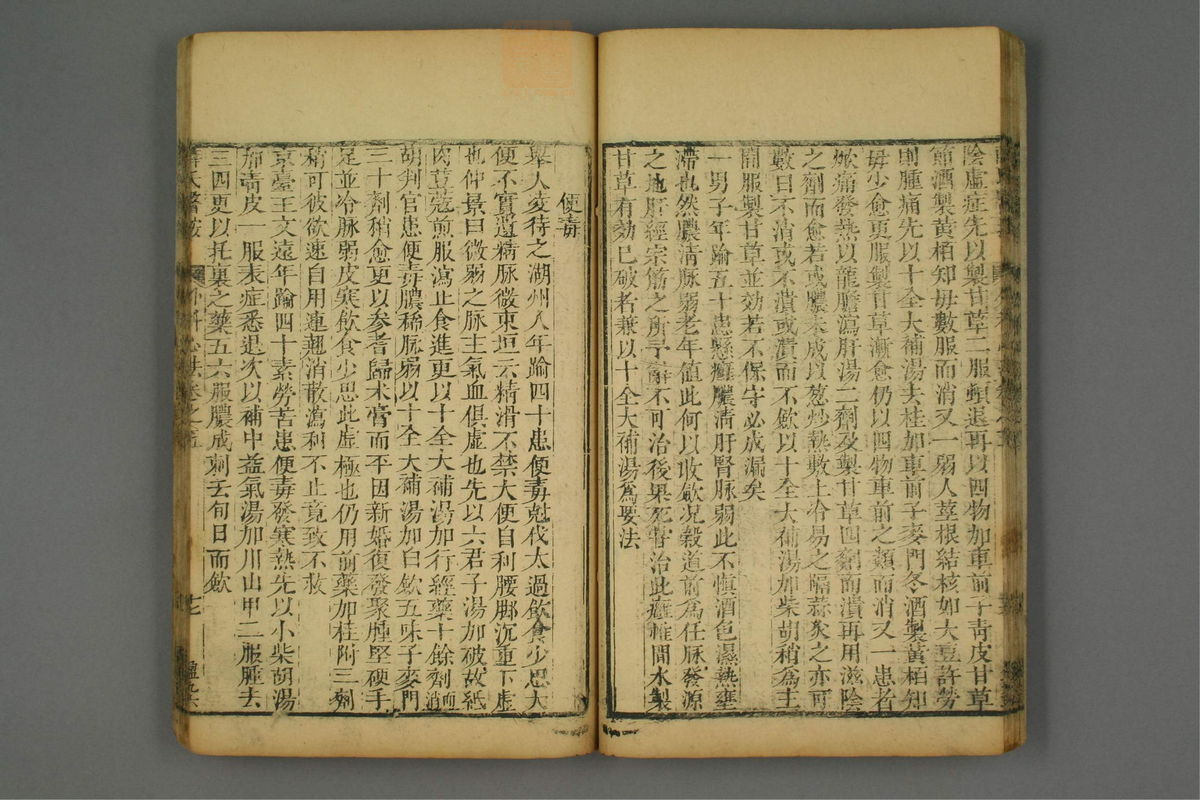 陰虛症先以製甘草二服頓退再以四物加車前子青皮甘草
節酒製黃柏知母數服而消又一弱人莖根結核如大豆許勞
則腫痛先以十全大補湯去桂加車前子麥門冬酒製黃柏知
母少愈更服製甘草漸愈仍以四物車前之類而消又一患者
焮痛發熱以龍膽瀉肝湯二劑及製甘草四劑而潰再用滋陰
之劑而愈若或膿未成以葱炒熱敷上冷易之隔蒜灸之亦可
數日不消或不潰或潰而不歛以十全大補湯加柴胡稍爲主
間服製甘草並効若不保守必成漏矣
一男子年踰五十患懸癰膿清肝腎脉弱此不慎酒色濕熱壅
滯也然膿清脉弱老年值此何以收歛况穀道前爲任脉發源
之地肝經宗筋之所予辭不可治後果死害治此癰惟間水製
甘草有効已破者兼以十全大補湯爲要法
便毒
舉人凌待之湖州人年踰四十患便毒尅伐太過飲食少思大
便不實遺精脉微東垣云精滑不禁大便自利腰脚沉重下虛
也仲景曰微弱之脉主氣血俱虛也先以六君子湯加破故紙
肉荳蔻煎服瀉止食進更以十全大補湯加行經藥十餘劑而消
胡判官患便毒膿稀脉弱以十全大補湯加白歛五味子麥門
三十劑稍愈更以參耆歸朮膏而平因新婚復發聚腫堅硬手
足並冷脉弱皮寒飲食少思此虛極也仍用前藥加桂附三劑
稍可彼欲速自用連翹消散瀉利不止竟致不救
京臺王文遠年踰四十素勞苦患便毒發寒熱先以小柴胡湯
加青皮一服表症悉退次以補中益氣湯加川山甲二服腫去
三四更以托裏之藥五六服膿成刺去旬日而歛
薛氏醫按
外科心法卷之五
十七